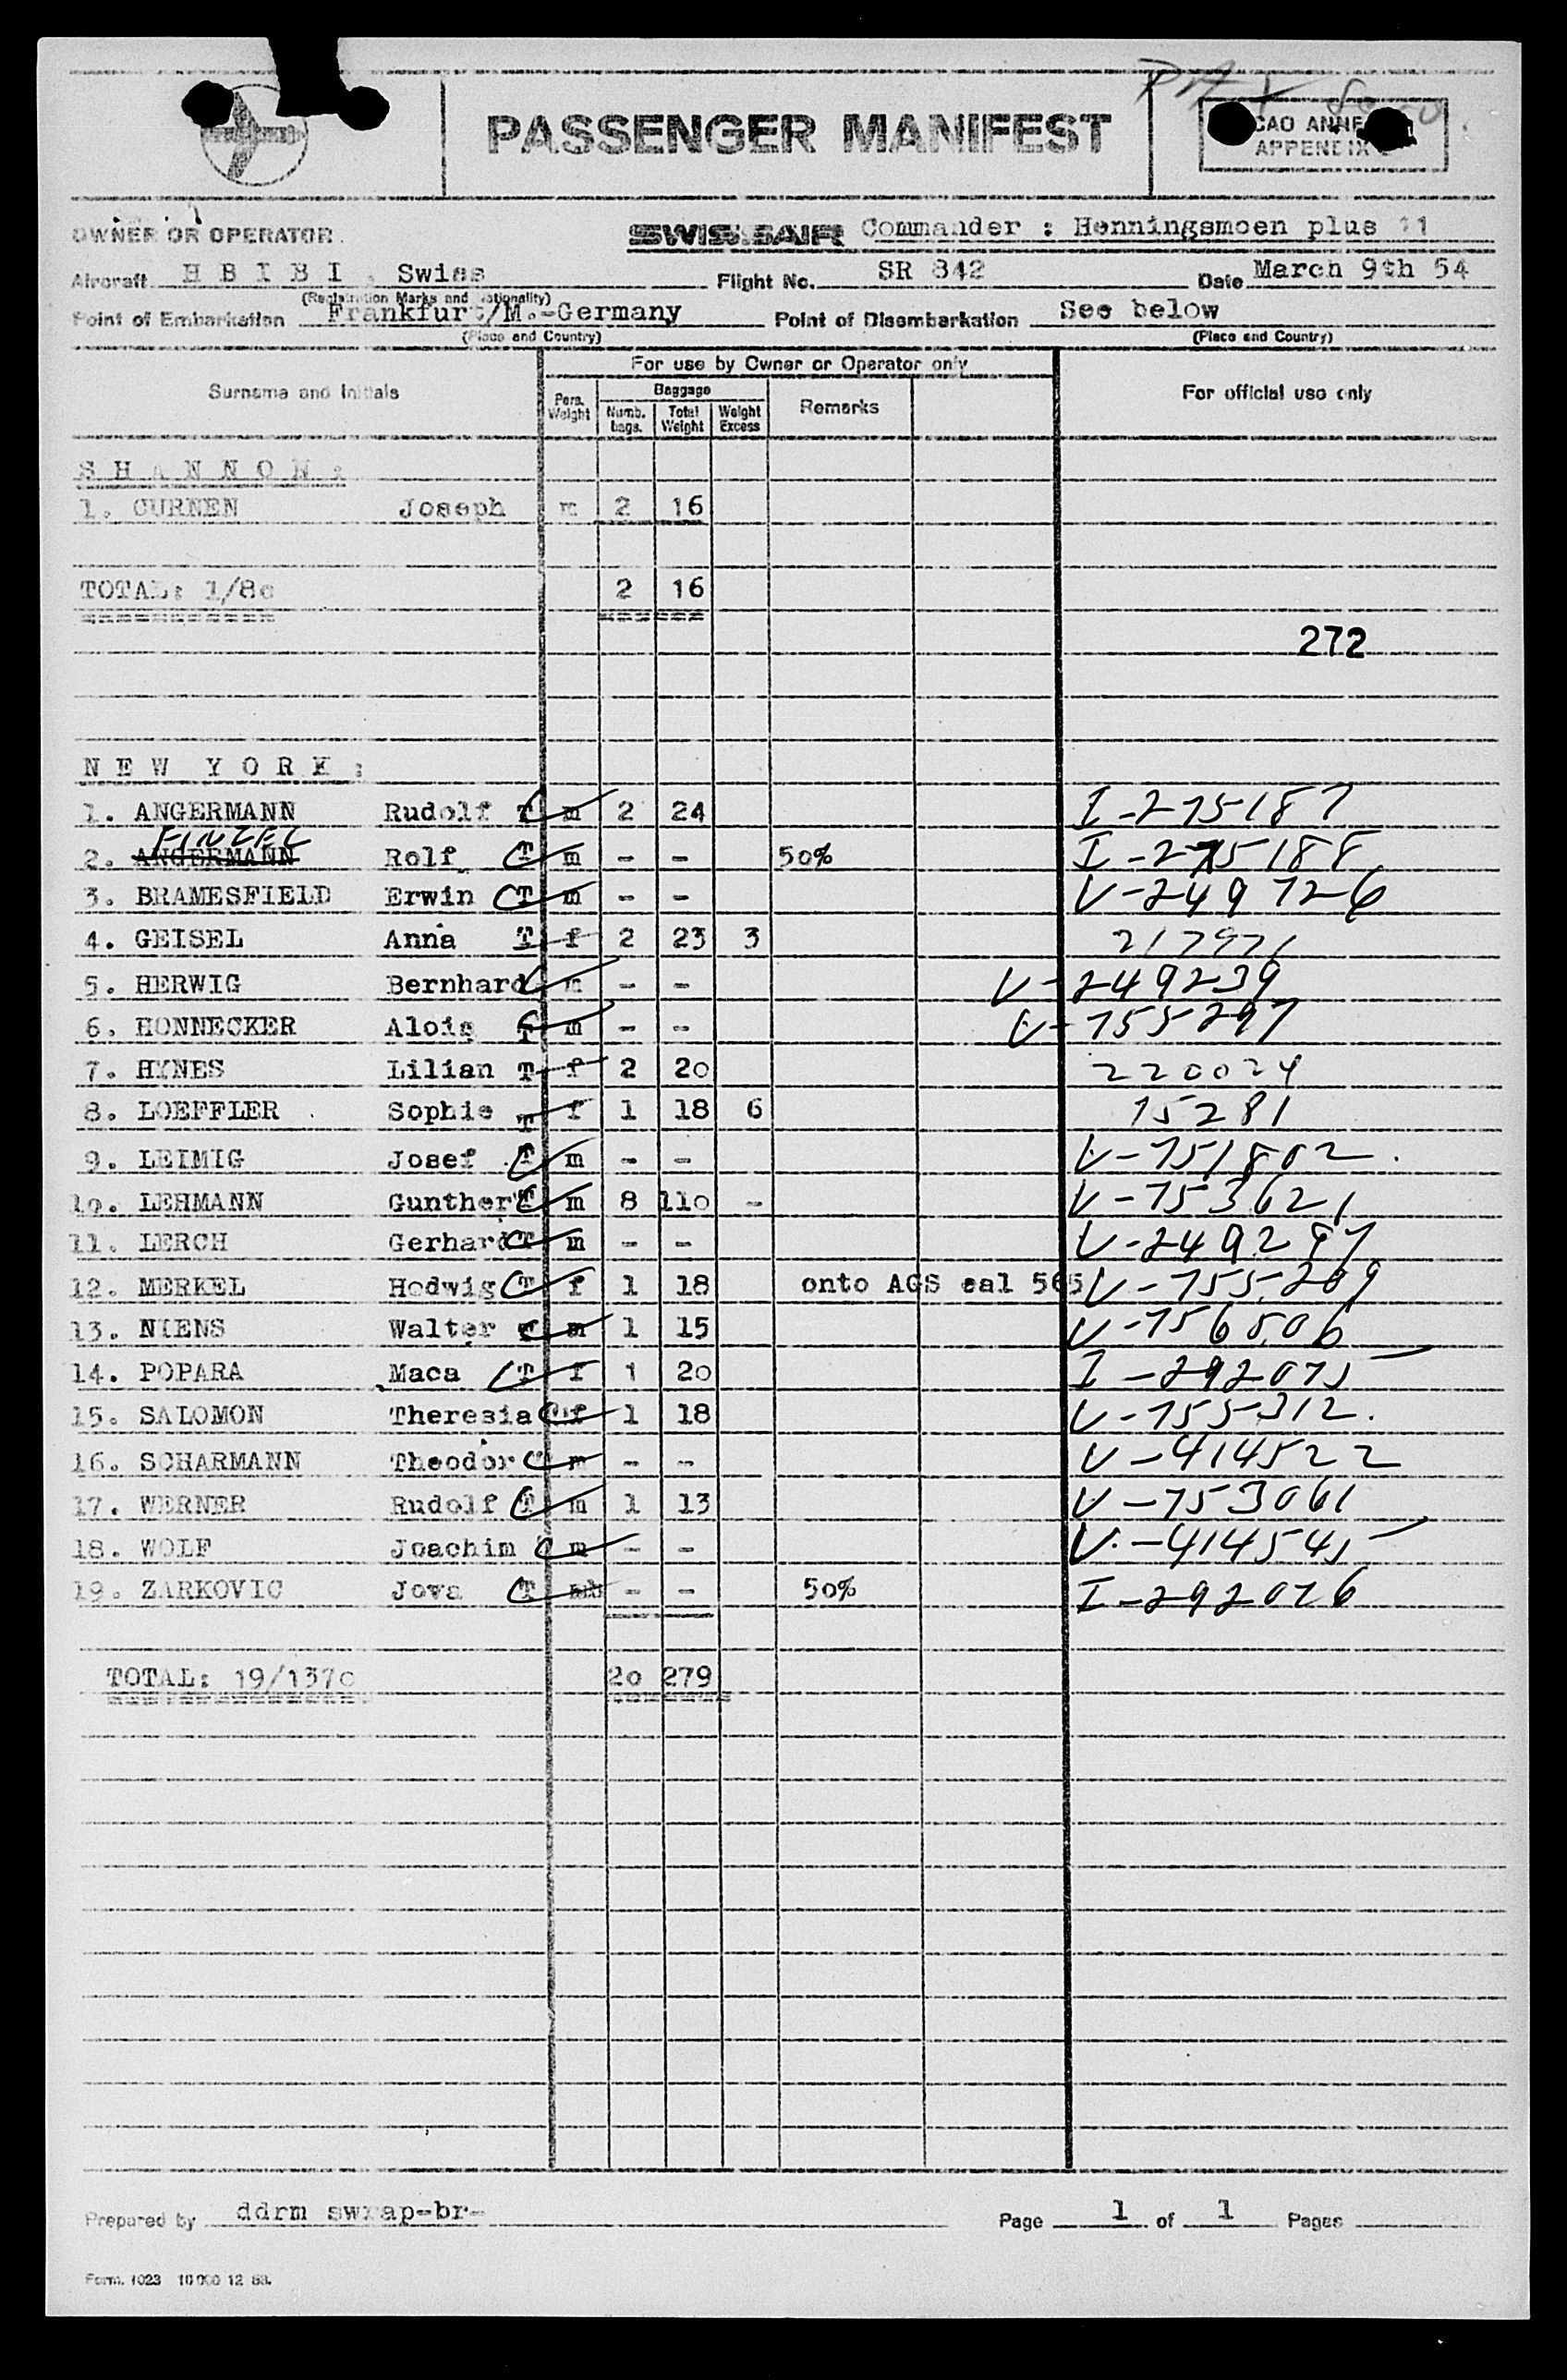 PASSENGER MANIFEST
ICAO ANNEX
APPENDIX
OWNER OR OPERATOR SWISSAIR Commander : Henningsmoen plus 11
Aircraft H B I B I , Swiss Flight No. SR 842 Date March 9th 54
(Registration Marks and Nationality)
Point of Embarkation Frankfurt/M.-Germany Point of Disembarkation See below
(Place and Country) (Place and Country)
For use by Owner or Operator only
Surname and Initials Pers. Weight Baggage Numb. bags. Total Weight Weight Excess Remarks For official use only
S H A N N O N :
1. CURNEN Joseph m 2 16
TOTAL: 1/80 2 16
272
N E W Y O R K :
1. ANGERMANN Rudolf T m 2 24 I-275187
FINZEL
2. ANGERMANN Rolf T m - - 50% I-275188
3. BRAMESFIELD Erwin T m - - V-249726
4. GEISEL Anna T f 2 23 3 217971
5. HERWIG Bernhard m - - V-249239
6. HONNECKER Alois T m - - V-755297
7. HYNES Lilian T f 2 20 220024
8. LOEFFLER Sophie T f 1 18 6 75281
9. LEIMIG Josef T m - - V-751802
10. LEHMANN Gunther T m 8 110 - V-753621
11. LERCH Gerhard T m - - V-249297
12. MERKEL Hedwig T f 1 18 onto AGS eal 565 V-755209
13. NIENS Walter T m 1 15 V-756806
14. POPARA Maca T f 1 20 I-292075
15. SALOMON Theresia T f 1 18 V-755312.
16. SCHARMANN Theodor m - - V-414522
17. WERNER Rudolf T m 1 13 V-753061
18. WOLF Joachim m - - V-414545
19. ZARKOVIC Jova T - - 50% I-292076
TOTAL: 19/1370 20 279
Prepared by ddrm swrap-br- Page 1 of 1 Pages
Form. 1023 10 000 12 53.